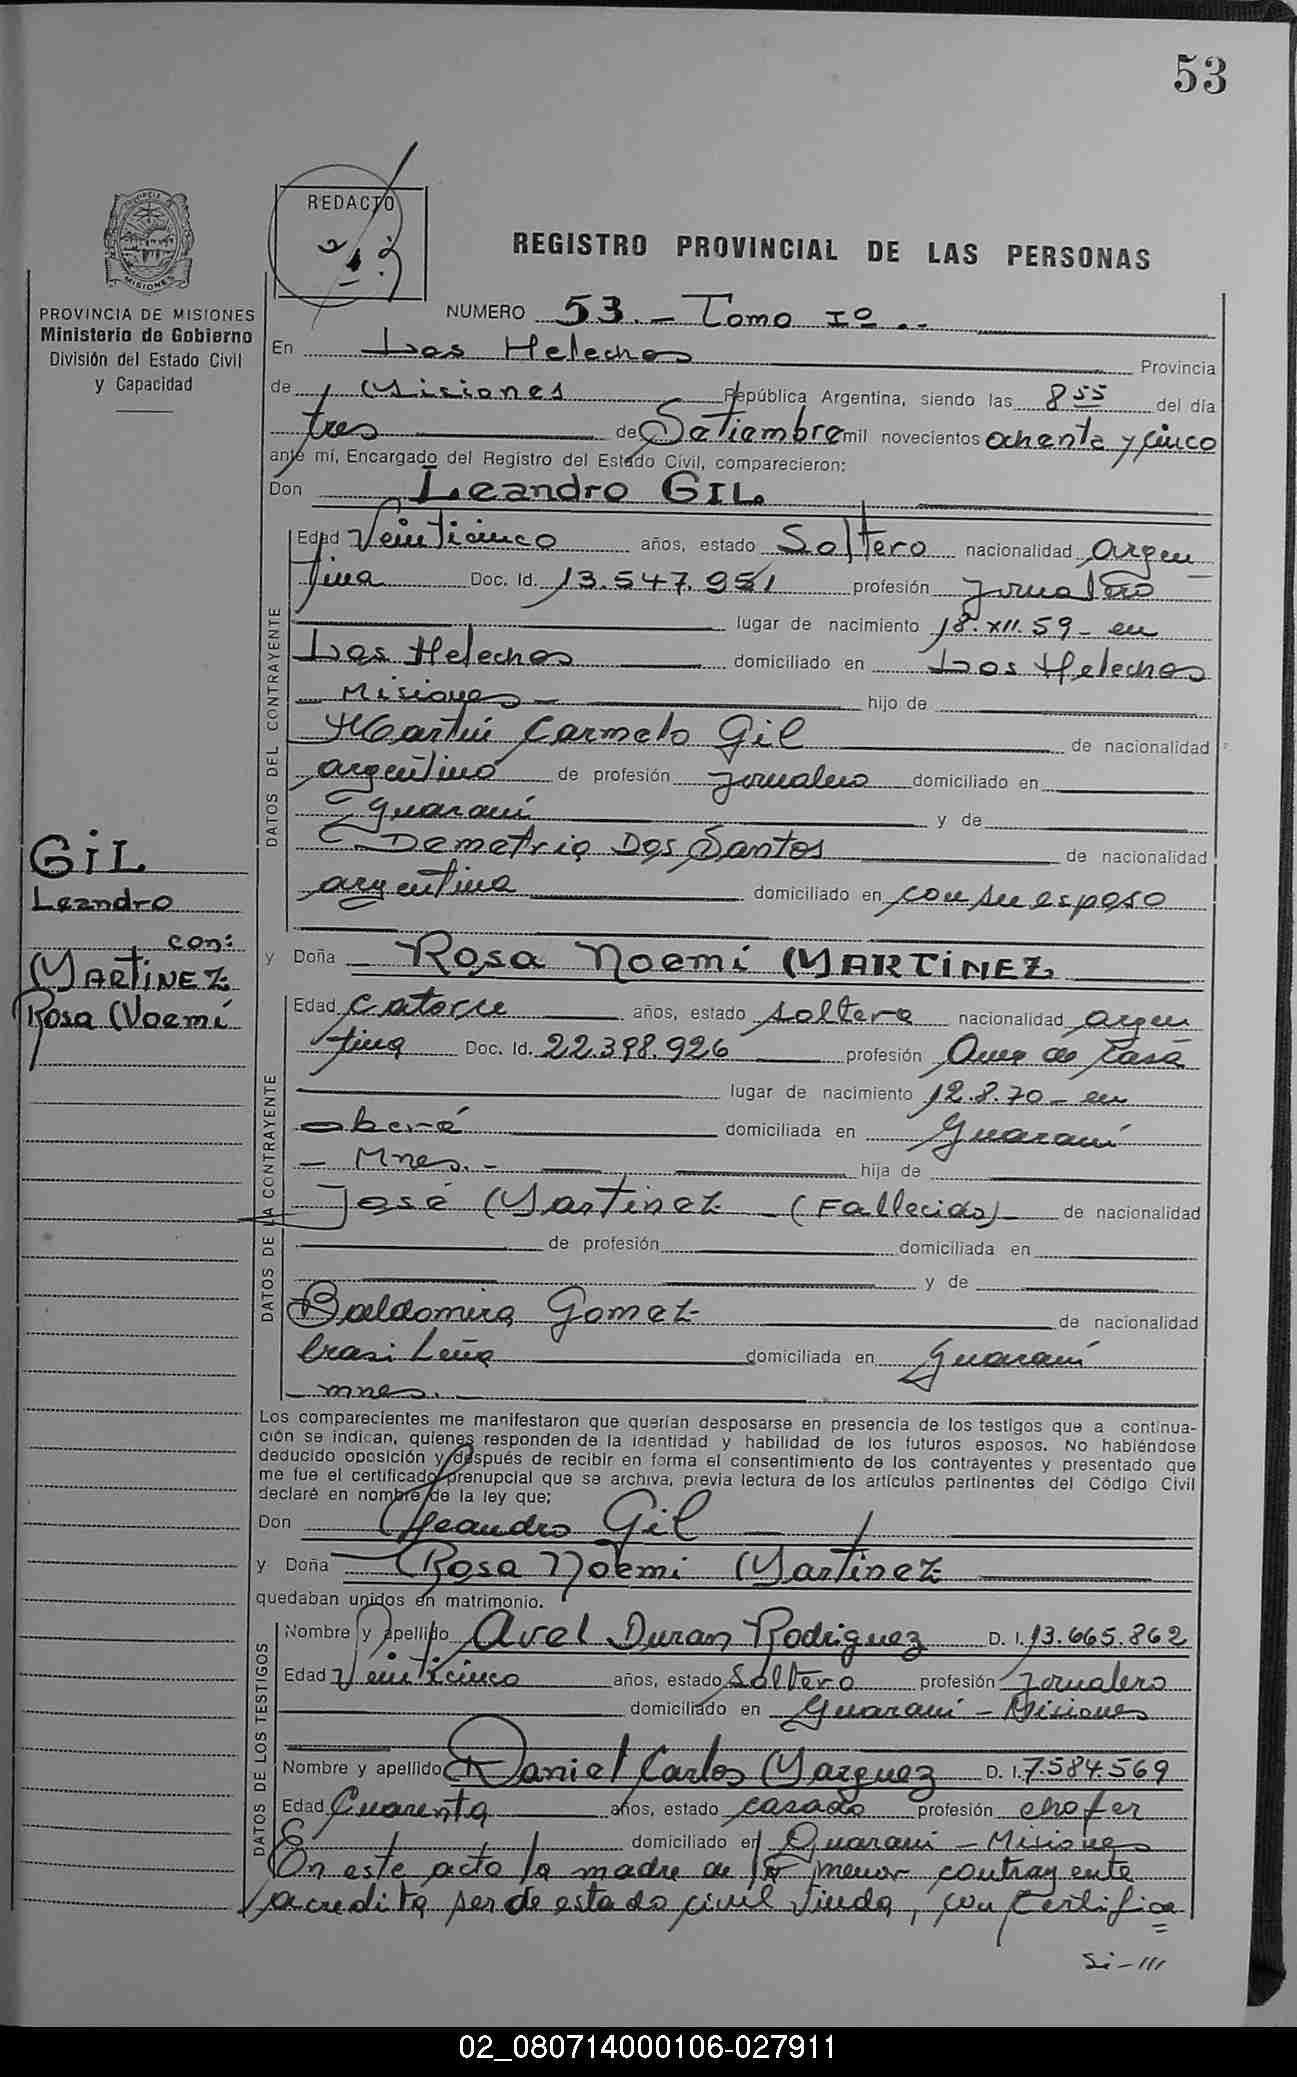 53
REDACTO
REGISTRO PROVINCIAL DE LAS PERSONAS
PROVINCIA DE MISIONES
Ministerio de Gobierno
División del Estado Civil
y Capacidad
NUMERO 53.- Tomo Iº..
En Los Helechos Provincia
de Misiones República Argentina, siendo las 8 55 del día
tres de Setiembre mil novecientos ochenta y cinco
ante mí, Encargado del Registro del Estado Civil, comparecieron:
Don Leandro GIL
DATOS DEL CONTRAYENTE
Edad Veinticinco años, estado Soltero nacionalidad argen
tina Doc. Id. 13.547.951 profesión Jornalero
lugar de nacimiento 18.XII.59- en
Los Helechos domiciliado en Los Helechos
Misiones - hijo de
Martín Carmelo Gil de nacionalidad
argentino de profesión Jornalero domiciliado en
Guaraní y de
Demetria Dos Santos de nacionalidad
argentina domiciliado en con su esposo
GIL
Leandro
con:
MARTINEZ
Rosa Noemí
y Doña Rosa Noemí MARTINEZ
DATOS DE LA CONTRAYENTE
Edad catorce años, estado soltera nacionalidad argen
tina Doc. Id. 22.398.926 profesión Ama de Casa
lugar de nacimiento 12.8.70- en
oberá domiciliada en Guaraní
- Mnes.- hija de
José Martinez - (Fallecido)- de nacionalidad
de profesión domiciliada en
y de
Baldomira Gomez de nacionalidad
brasileña domiciliada en Guaraní
- mnes.-
Los comparecientes me manifestaron que querían desposarse en presencia de los testigos que a continua-
ción se indican, quienes responden de la identidad y habilidad de los futuros esposos. No habiéndose
deducido oposición y después de recibir en forma el consentimiento de los contrayentes y presentado que
me fue el certificado prenupcial que se archiva, previa lectura de los artículos pertinentes del Código Civil
declaré en nombre de la ley que;
Don Leandro Gil
y Doña Rosa Noemi Martinez
quedaban unidos en matrimonio.
DATOS DE LOS TESTIGOS
Nombre y apellido Avel Duran Rodriguez D. I. 13.665.862
Edad Veinticinco años, estado Soltero profesión Jornalero
domiciliado en Guaraní - Misiones
Nombre y apellido Daniel Carlos Marquez D. I. 7.584.569
Edad Cuarenta años, estado casado profesión chofer
domiciliado en Guaraní - Misiones
En este acto la madre de la menor contrayente
acredita ser de estado civil viuda, con Certifica
=
Si-///
02_080714000106-027911